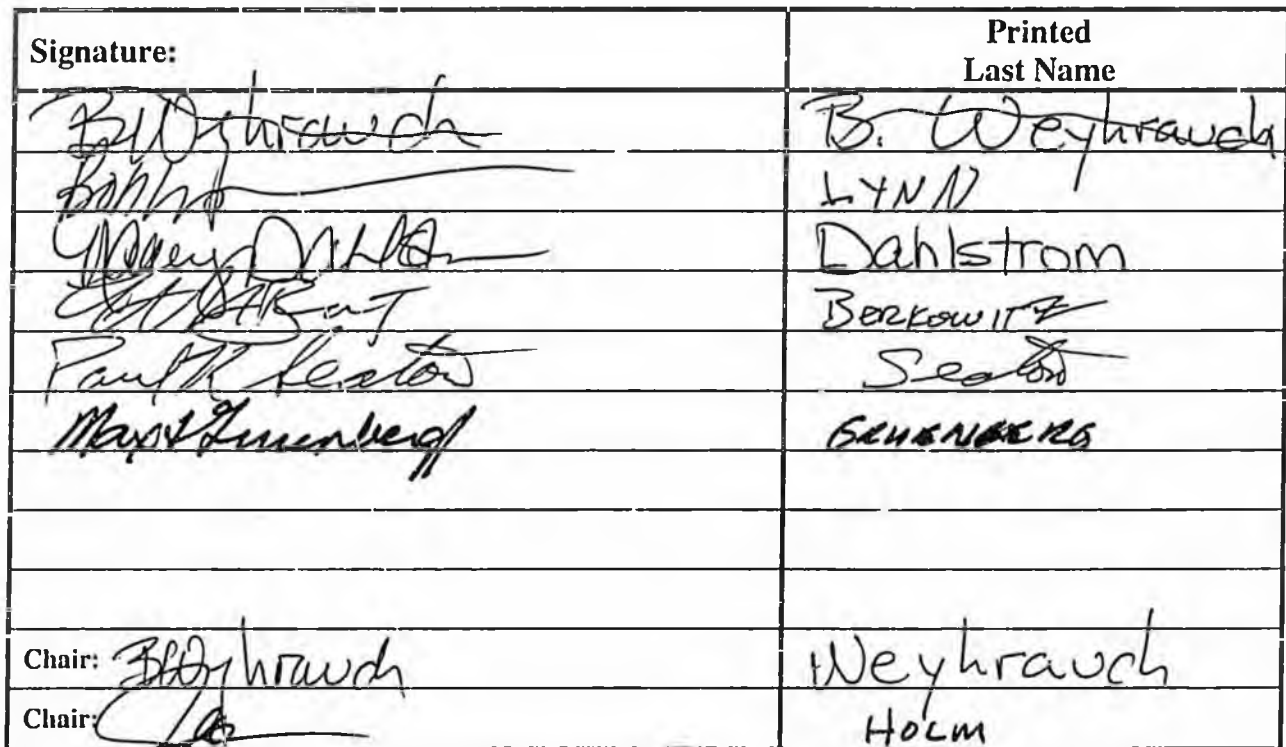 Signature: Printed
Last Name
B Weyhrauch B. Weyhrauch
LYNN
Dahlstrom
BERKOWITZ
Paul K Seaton Seaton
Max Gruenberg GRUENBERG
Chair: BWeyhrauch Weyhrauch
Chair: HOLM